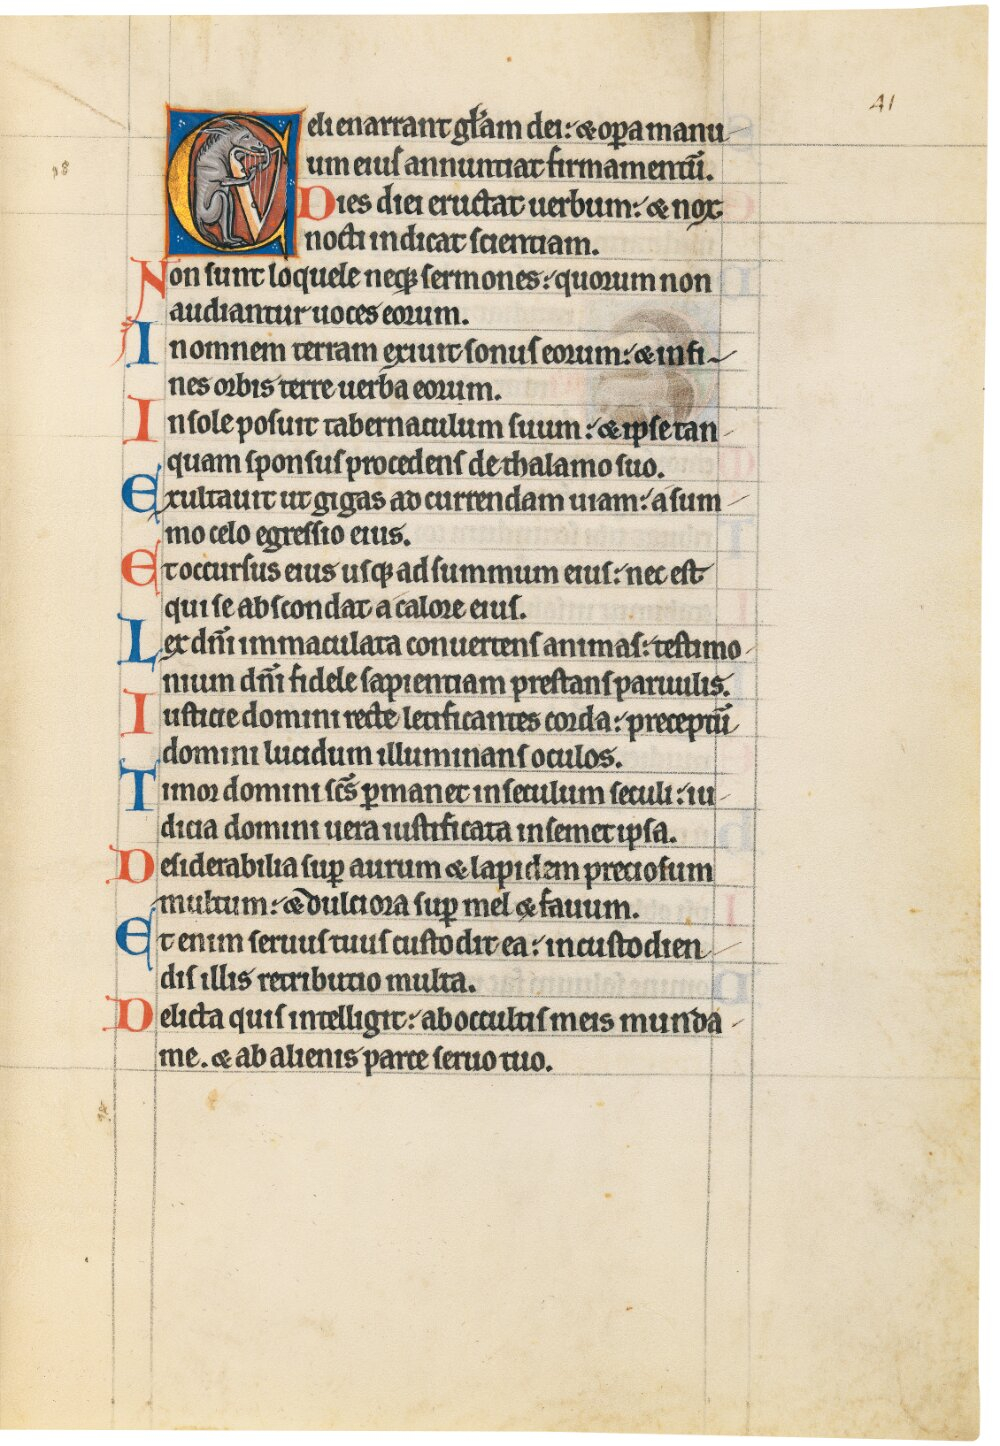 41
Celi enarrant gl̄am dei: & opa manu
um eiuſ annuntiat firmamentū.
Dies diei eructat uerbum: & nox
nocti indicat ſcientiam.
18
Non ſunt loquele neqꝫ ſermones: quorum non
audiantur uoces eorum.
In omnem terram exiuit ſonuſ eorum: & in fi
nes orbis terre uerba eorum.
In ſole poſuit tabernaculum ſuum: & ipſe tan
quam ſponſuſ procedenſ de thalamo ſuo.
Exultauit ut gigas ad currendam uiam: a ſum
mo celo egreſſio eius.
Et occurſus eius uſqꝫ ad ſummum eiuſ: nec eſt
qui ſe abſcondat a calore eiuſ.
Lex dn̄i immaculata conuertenſ animaſ: teſtimo
nium dn̄i fidele ſapientiam preſtanſ paruulis.
Iuſticie domini recte letificantes corda: preceptū
domini lucidum illuminanſ oculos.
Timor domini ſc̄s ꝑmanet in ſeculum ſeculi: iu
dicia domini uera iuſtificata in ſemet ipſa.
Deſiderabilia ſuꝑ aurum & lapidem precioſum
multum: & dulciora ſuꝑ mel & fauum.
Et enim ſeruuſ tuuſ cuſtodit ea: in cuſtodien
diſ illis retributio multa.
Delicta quiſ intelligit: ab occultiſ meis munda
me. & ab alienis parce ſeruo tuo.